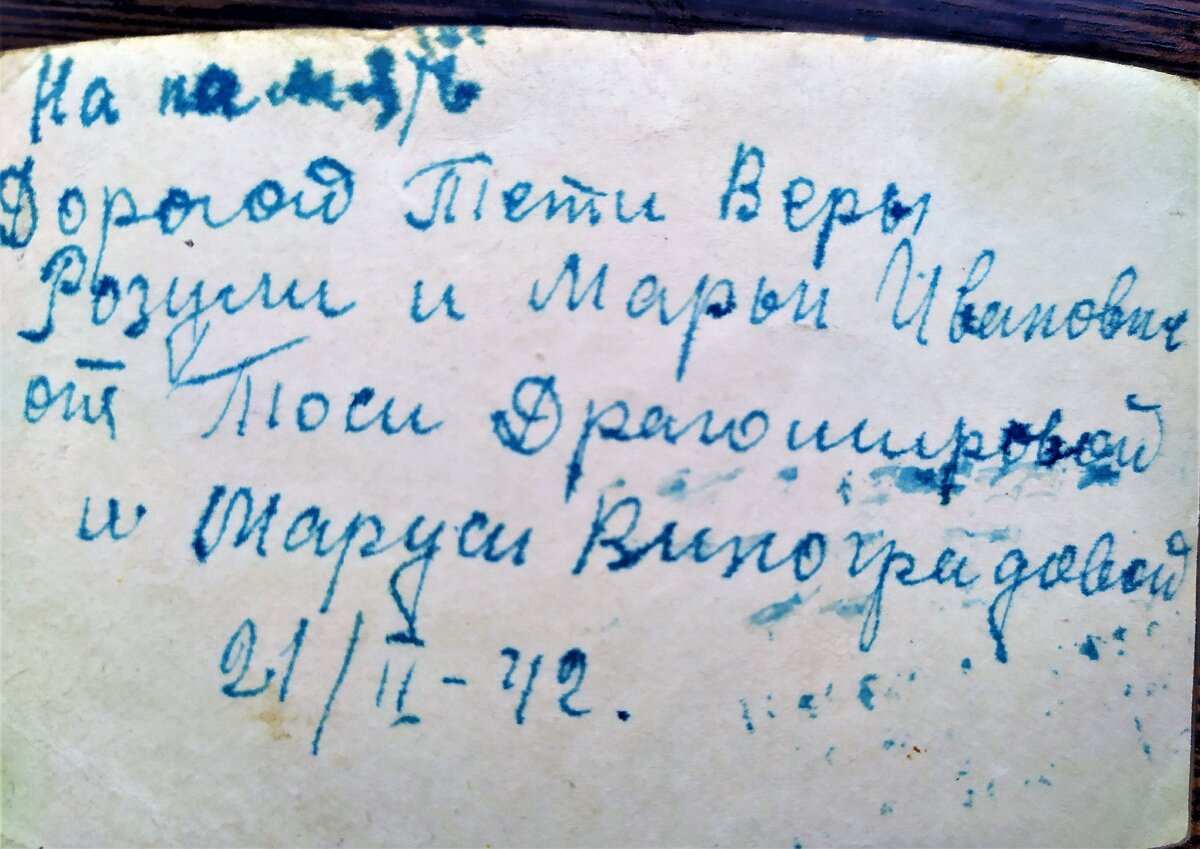 На память
Дорогой Тети Веры
Розули и Марьи Иванович
от Тоси Драгомировой
и Маруси Виноградовой
21/II-42.